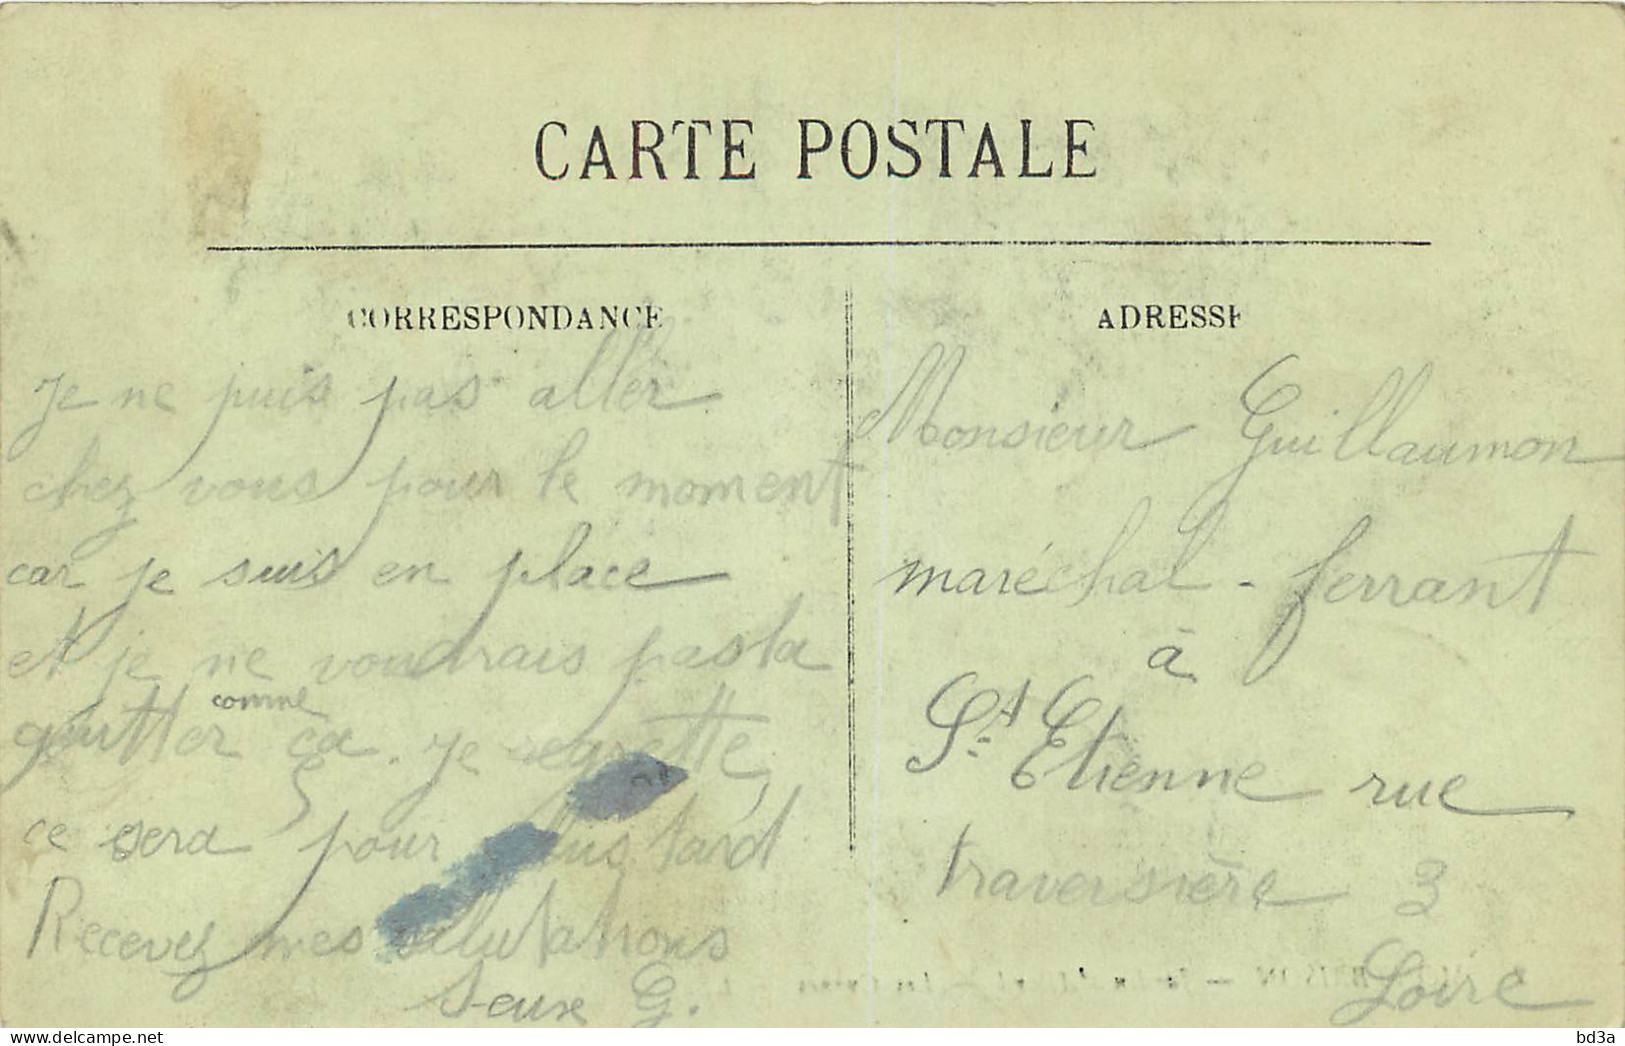 CARTE POSTALE
CORRESPONDANCE
Je ne puis pas aller
chez vous pour le moment
car je suis en place
et je ne voudrais pas la
quitter comme ça. Je regrette,
ce sera pour plus tard
Recevez mes salutations
Seux G.
ADRESSE
Monsieur Guillaumon
maréchal-ferrant
à
St Etienne rue
traversière 3
Loire
delcampe.net
bd3a